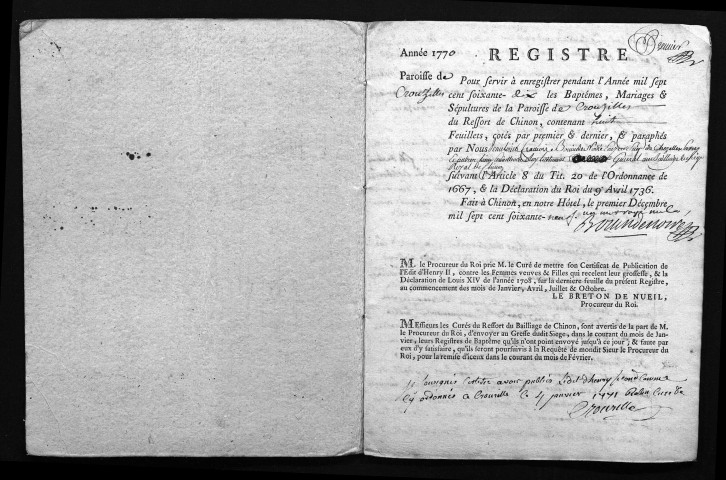 Premier
Année 1770
REGISTRE
Paroisse de Crouzilles
Pour servir à enregistrer pendant l'Année mil sept
cent soixante-dix les Baptêmes, Mariages &
Sépultures de la Paroisse de Crouzilles
du Ressort de Chinon, contenant huit
Feuillets, cotés par premier & dernier, & paraphés
par Nous
Royal de Chinon
suivant l'Article 8 du Tit. 20 de l'Ordonnance de
1667, & la Déclaration du Roi du 9 Avril 1736.
Fait à Chinon, en notre Hôtel, le premier Décembre
mil sept cent soixante-neuf
M. le Procureur du Roi prie M. le Curé de mettre son Certificat de Publication de
l'Edit d'Henry II, contre les Femmes veuves & Filles qui recelent leur grossesse, & la
Déclaration de Louis XIV de l'année 1708, sur la derniere feuille du présent Registre,
au commencement des mois de Janvier, Avril, Juillet & Octobre.
LE BRETON DE NUEIL,
Procureur du Roi.
MEssieurs les Curés du Ressort du Bailliage de Chinon, sont avertis de la part de M.
le Procureur du Roi, d'envoyer au Greffe dudit Siege, dans le courant du mois de Jan-
vier, leurs Registres de Baptême qu'ils n'ont point envoyé jusqu'à ce jour; & faute par
eux d'y satisfaire, qu'ils seront poursuivis à la Requête de mondit Sieur le Procureur du
Roi, pour la remise d'iceux dans le courant du mois de Février.
certifie avoir publié l'edit d'henry second comme
ordonnée a Crouzille ce janvier 1771 Curé de
Crouzille